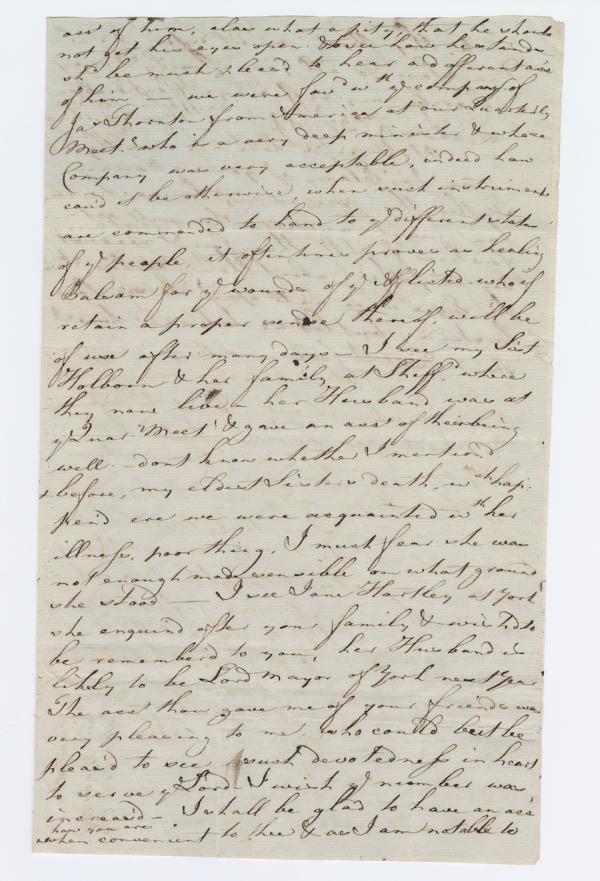 acc.t of him, alas what a pity, that he should
not get his eyes open & see how he stands
sh.d be much pleas'd to hear a different acc.t
of him — we were fav.d w.th y.e company of
Ja.s Thornton from America at our Quarterly
Meet.g who is a very deep minister & whose
Company was very acceptable, indeed how
cou'd it be otherwise, when such instruments
are commanded to hand to y.e different states
of y.e people, it often times proves as healing
Balsam for y.e wounds of y.e afflicted who if
retain a proper sense thereof, will be
of use after many days — I see my Sist.r
Holborn & her family at Sheff.d where
they now live — her Husband was at
y.e Quar.r Meet.g & gave an acc.t of their being
well — dont know whether I mention'd
before, my eldest Sisters death, w.ch hap:
:pen'd ere we were acquainted w.th her
illness, poor thing, I much fear she was
not enough made sensible on what ground
she stood — I see Jane Hartley at York
she enquir'd after your family & wish'd to
be remember'd to you, her Husband is
likely to be Lord Mayor of York next year
The acc.t thou gave me of your friends was
very pleasing to me, who could but be
pleas'd to see such devotedness in heart
to serve y.e Lord — I wish y.e number was
increas'd — I shall be glad to have an acc.t
how you are
when convenient to thee & as I am not able to